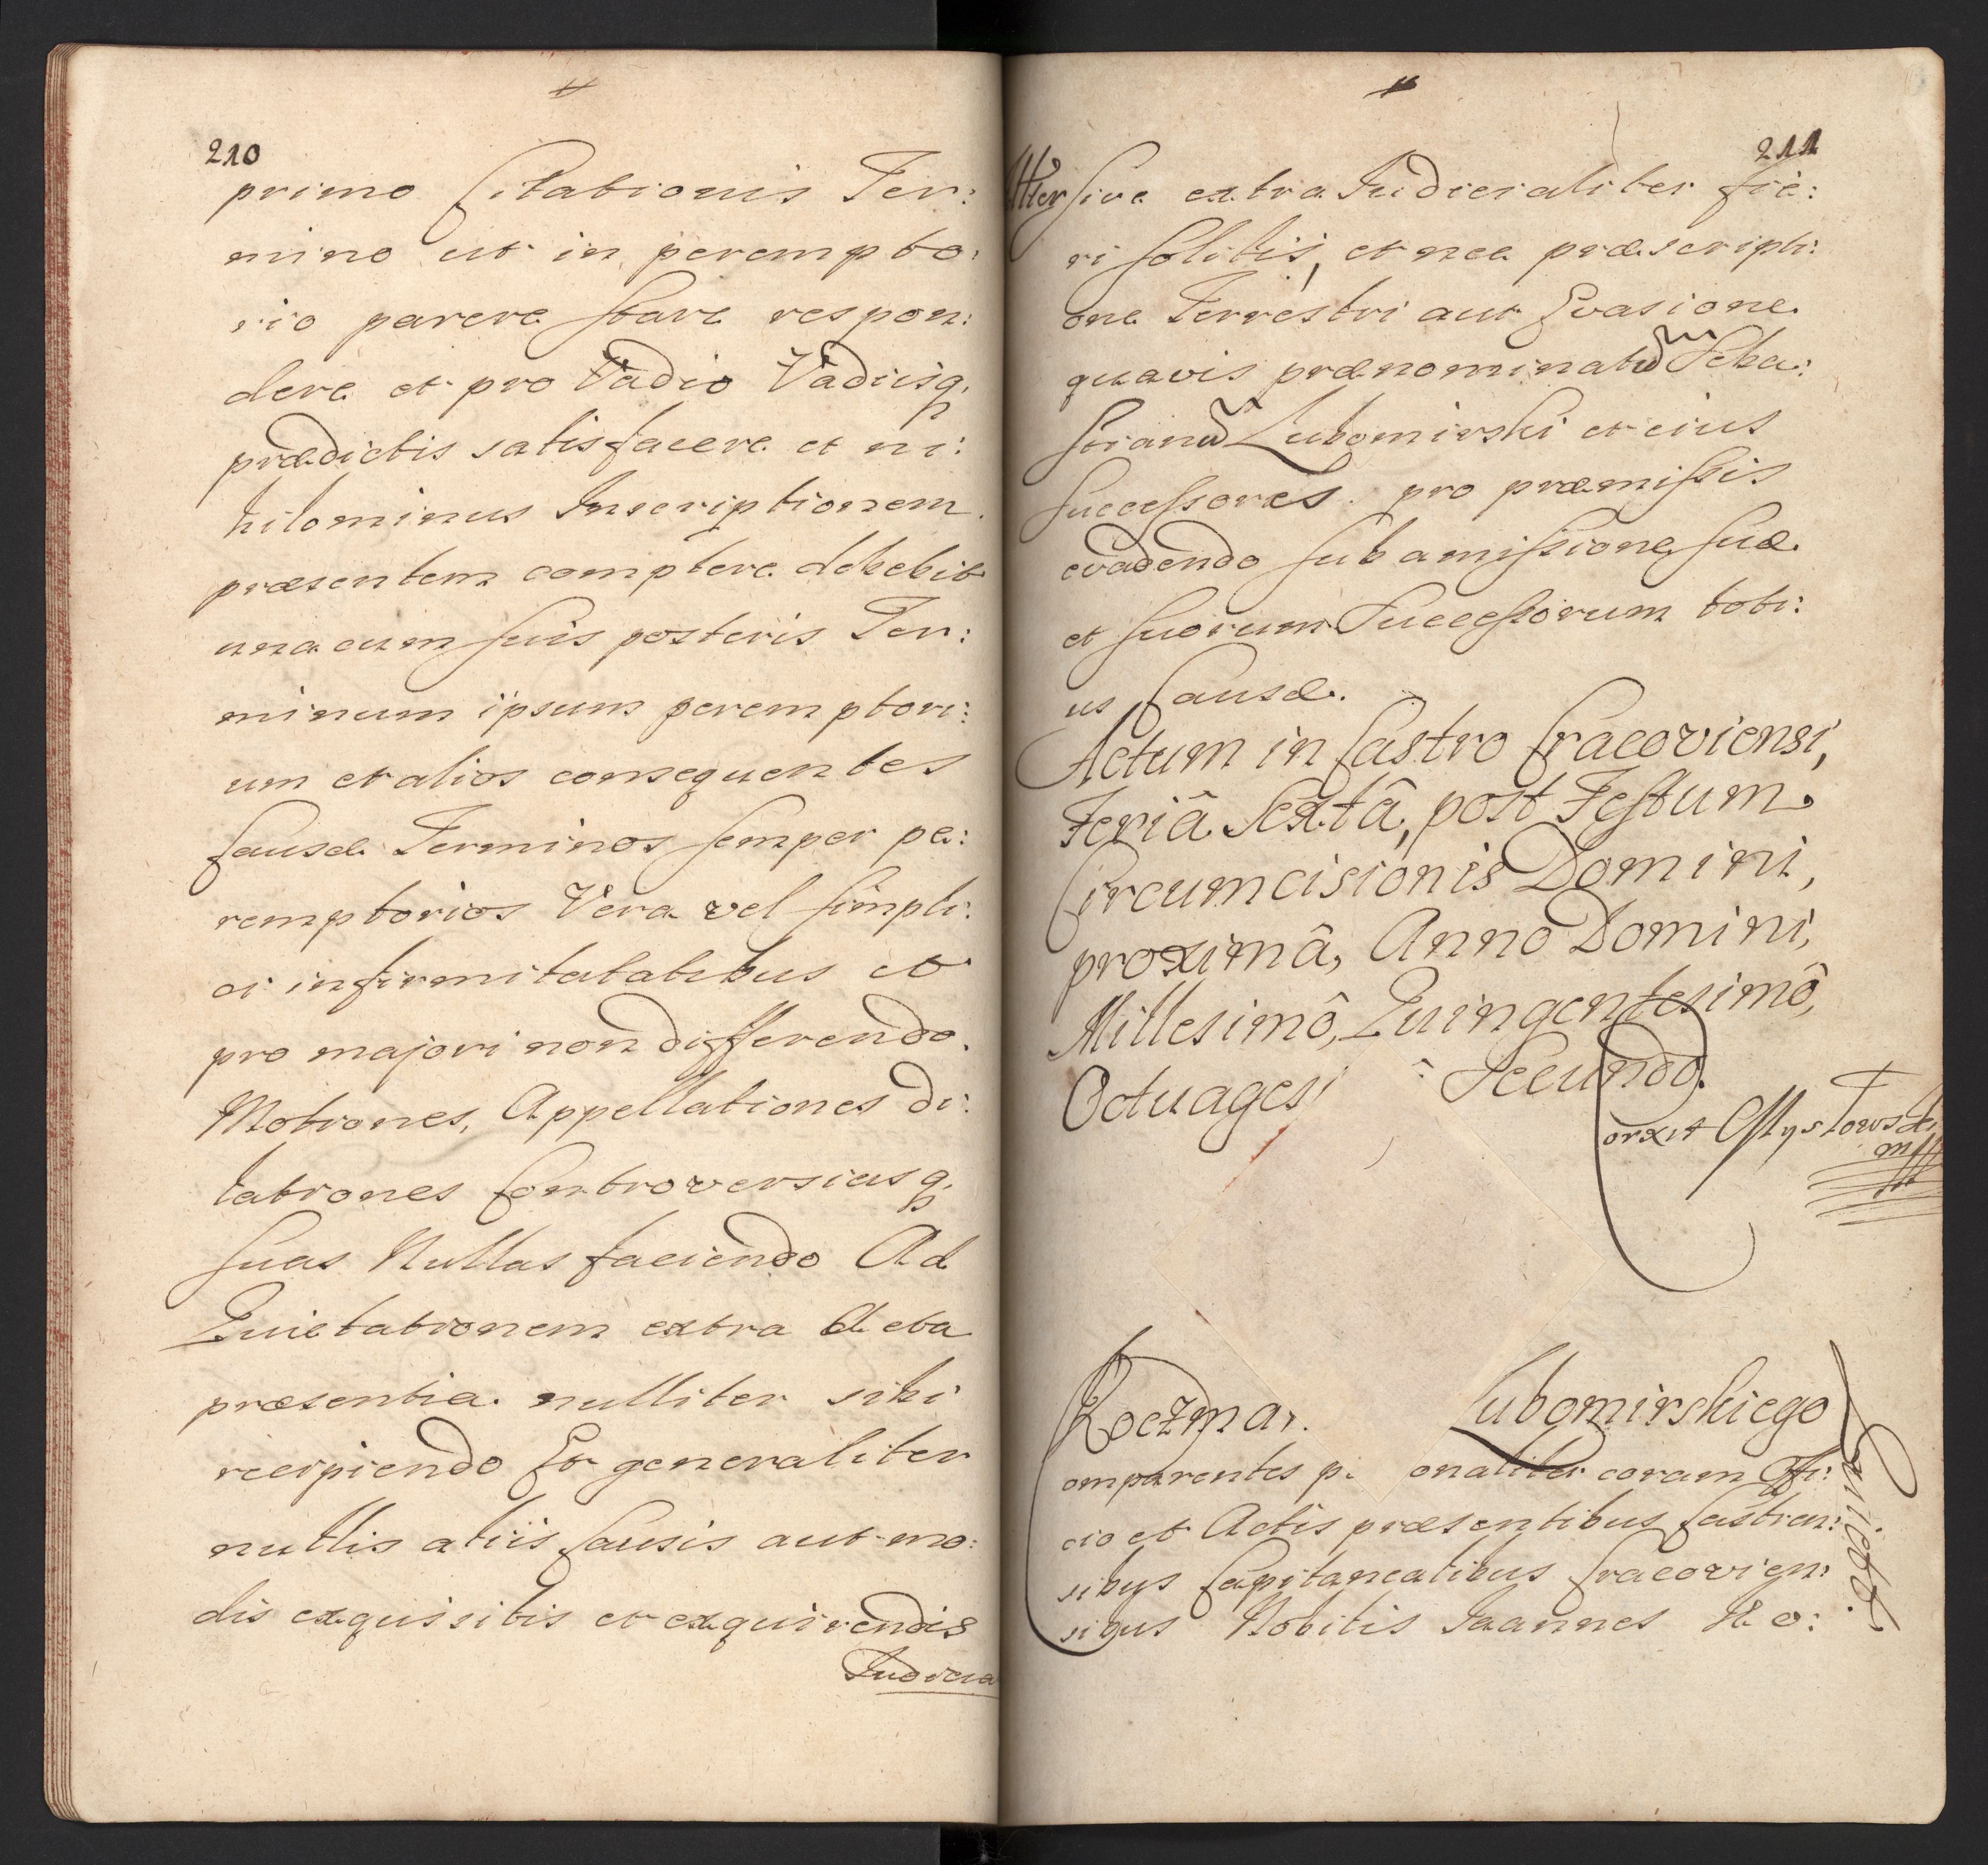 210
primo Citationis Ter:
mino ut in perempto:
rio parere stare respon:
dere et pro Vadio Vadiisq;
prædictis satisfacere et ni:
hilominus Inscriptionem
præsentem complere debebit
una cum suis posteris Ter:
minum ipsum peremptori:
um et alios consequentes
Causæ Terminos semper pe:
remptorios Vera vel simpli:
ci infirmitatatibus et
pro majori non differendo.
Motiones, Appellationes di:
lationes Controversiasq;
suas Nullas faciendo Ad
Quietationem extra Acta
præsentia nulliter sibi
recipiendo Et generaliter
nullis aliis Causis aut mo:
dis exquisitis et exquirendis
Iudicia
211
liter sive extra Iudicialiter fie:
ri solitis, et nec præscripti:
one Terrestri aut Evasione
quavis prænominatum Seba:
stianum Lubomirski et eius
Successores pro præmissis
evadendo sub amissione suæ
et suorum Successorum toti:
us Causæ.
Actum in Castro Cracoviensi,
Feriâ Sextâ, post Festum
Circumcisionis Domini,
proximâ, Anno Domini,
Millesimô, Quingentesimô,
Octuagesi Secundo.
Koczmar. Lubomirskiego
omparentes p onaliter coram Offi:
cio et Actis præsentibus Castren:
sibus Capitanealibus Cracovien:
sibus Nobilis Joannes Ko: